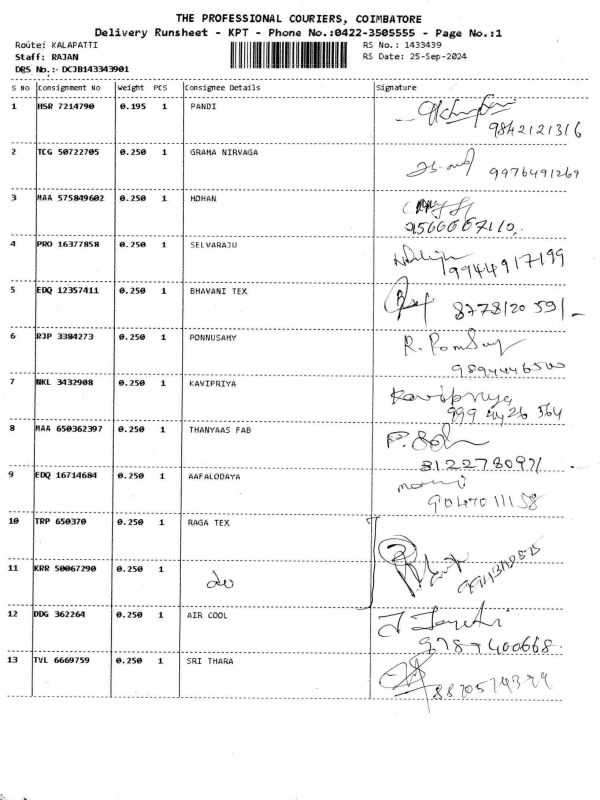 THE PROFESSIONAL COURIERS, COIMBATORE
Delivery Runsheet - KPT - Phone No.:0422-3505555 - Page No.:1
Route: KALAPATTI RS No.: 1433439
Staff: RAJAN RS Date: 25-Sep-2024
DRS No.:- DCJB143343901
S No Consignment No Weight PCS Consignee Details Signature
1 MSR 7214790 0.195 1 PANDI
9842121316
2 TCG 50722705 0.250 1 GRAMA NIRVAGA
9976491269
3 MAA 575849602 0.250 1 MOHAN
4 PRO 16377858 0.250 1 SELVARAJU
9944917199
5 EDQ 12357411 0.250 1 BHAVANI TEX
6 RJP 3384273 0.250 1 PONNUSAMY
R. Ponnusamy
7 NKL 3432908 0.250 1 KAVIPRIYA
Kavipriya
999 4426 564
8 MAA 650362397 0.250 1 THANYAAS FAB
9 EDQ 16714684 0.250 1 AAFALODAYA
9047011158
10 TRP 650370 0.250 1 RAGA TEX
11 KRR 50067290 0.250 1 do
12 DDG 362264 0.250 1 AIR COOL
13 TVL 6669759 0.250 1 SRI THARA